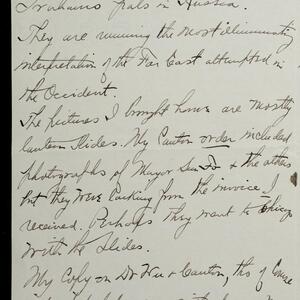 Grahams pals in Russia.
They are running the most illuminating
interpretation of the Far East attempted in
the Occident.
The pictures I brought home are mostly
lantern slides. My Canton order included
photographs of Mayor Sun Fo & the others
but they were lacking from the invoice I
received. Perhaps they went to Chicago
with the slides.
My Copy on Dr Wu & Canton, tho of Course